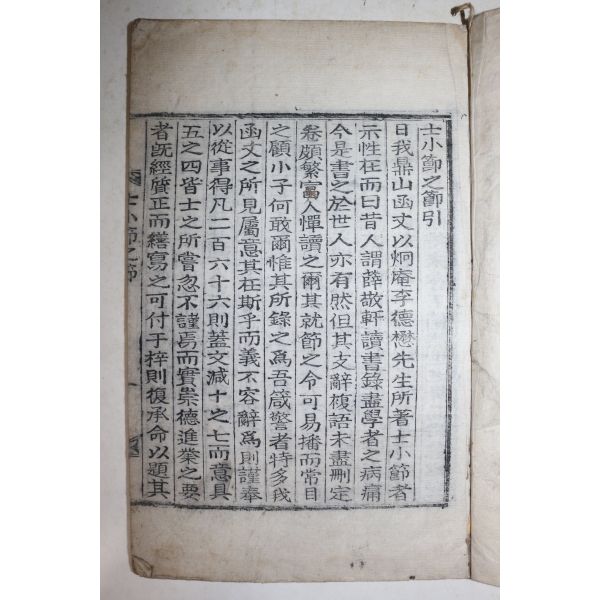 士小節之節引
日我鼎山函丈以炯庵李德懋先生所著士小節者
示性在而曰昔人謂薛敬軒讀書錄盡學者之病痛
今是書之於世人亦有然但其支辭複語未盡刪定
卷頗繁富人憚讀之爾其就節之令可易播而常目
之顧小子何敢爾惟其所錄之爲吾箴警者特多我
函丈之所見屬意其在斯乎而義不容辭爲則謹奉
以從事得凡二百六十六則蓋文減十之七而意具
五之四皆士之所嘗忽不謹焉而實崇德進業之要
者旣經質正而繕寫之可付于梓則復承命以題其
士小節之節